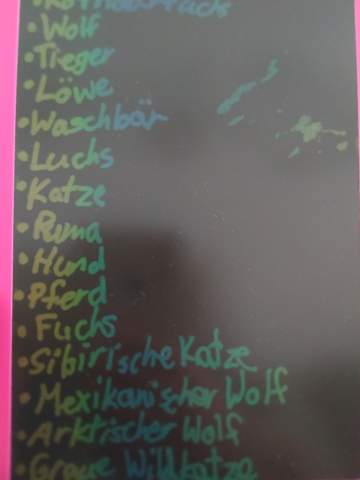 • Wolf
• Tieger
• Löwe
• Waschbär
• Luchs
• Katze
• Puma
• Hund
• Pferd
• Fuchs
• Sibirische Katze
• Mexikanischer Wolf
• Arktischer Wolf
• Graue Wildkatze